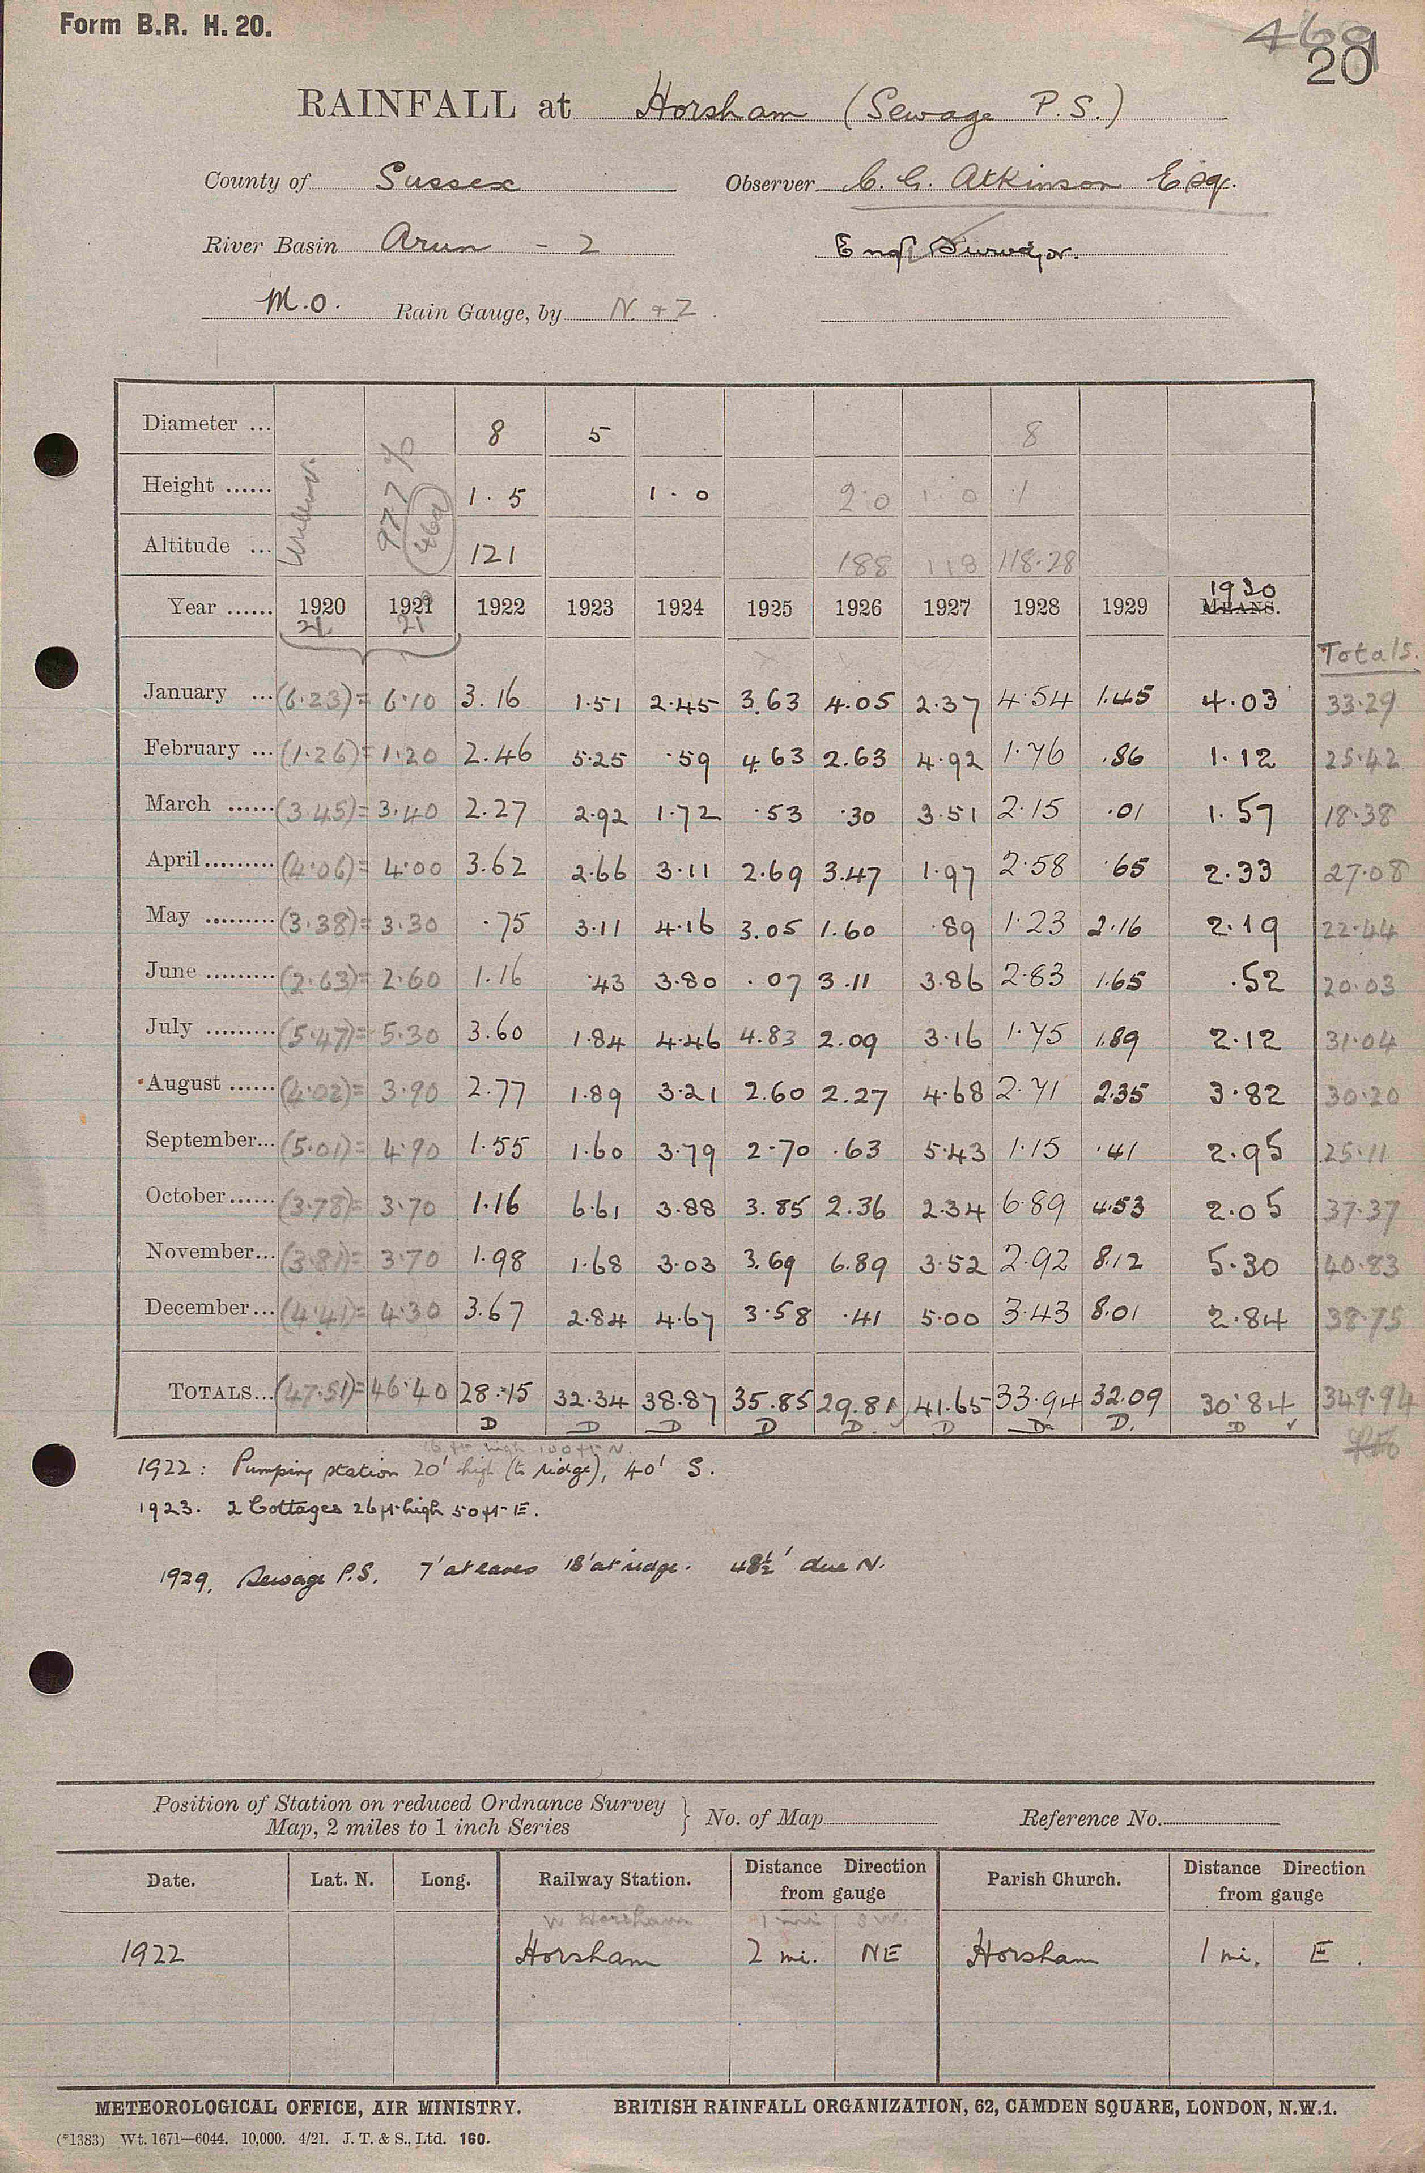 Form B.R. H. 20.
20
RAINFALL at Horsham (Sewage P.S.)
County of Sussex Observer C. G. Atkinson Esq.
River Basin Arun - 2 Eng. Surveyor.
M.O. Rain Gauge, by N. & Z.
Diameter ... 8 5 8
Height ...... 1.5 1.0 2.0 1.0 .1
Altitude ... 121 188 118 118.28
97.7 %
Year ...... 1920 1921 1922 1923 1924 1925 1926 1927 1928 1929 1930 MEANS.
21 21
Totals.
January ... (6.23) = 6.10 3.16 1.51 2.45 3.63 4.05 2.37 4.54 1.45 4.03 33.29
February ... (1.26) = 1.20 2.46 5.25 .59 4.63 2.63 4.92 1.76 .86 1.12 25.42
March ...... (3.45) = 3.40 2.27 2.92 1.72 .53 .30 3.51 2.15 .01 1.57 18.38
April ......... (4.06) = 4.00 3.62 2.66 3.11 2.69 3.47 1.97 2.58 .65 2.33 27.08
May ......... (3.38) = 3.30 .75 3.11 4.16 3.05 1.60 .89 1.23 2.16 2.19 22.44
June ......... (2.63) = 2.60 1.16 .43 3.80 .07 3.11 3.86 2.83 1.65 .52 20.03
July ......... (5.47) = 5.30 3.60 1.84 4.46 4.83 2.09 3.16 1.75 1.89 2.12 31.04
August ...... (4.02) = 3.90 2.77 1.89 3.21 2.60 2.27 4.68 2.71 2.35 3.82 30.20
September... (5.01) = 4.90 1.55 1.60 3.79 2.70 .63 5.43 1.15 .41 2.95 25.11
October ...... (3.78) = 3.70 1.16 6.61 3.88 3.85 2.36 2.34 6.89 4.53 2.05 37.37
November... (3.81) = 3.70 1.98 1.68 3.03 3.69 6.89 3.52 2.92 8.12 5.30 40.83
December... (4.41) = 4.30 3.67 2.84 4.67 3.58 .41 5.00 3.43 8.01 2.84 38.75
TOTALS... (47.51) = 46.40 28.15 32.34 38.87 35.85 29.81 41.65 33.94 32.09 30.84 349.94
D D D D D. D D D. D
1922 : Pumping station 20' high (to ridge), 40' S.
1923. 2 Cottages 26 ft high 50 ft E.
1929. Sewage P.S. 7' at eaves 18' at ridge. 48½' due N.
Position of Station on reduced Ordnance Survey Map, 2 miles to 1 inch Series } No. of Map Reference No.
Date. Lat. N. Long. Railway Station. Distance Direction from gauge Parish Church. Distance Direction from gauge
W Horsham 1 mi S W.
1922 Horsham 2 mi. NE Horsham 1 mi. E.
METEOROLOGICAL OFFICE, AIR MINISTRY. BRITISH RAINFALL ORGANIZATION, 62, CAMDEN SQUARE, LONDON, N.W.1.
(*1383) Wt. 1671—6044. 10,000. 4/21. J. T. & S., Ltd. 160.